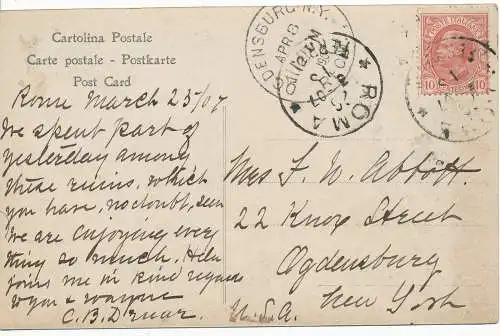 Cartolina Postale
Carte postale - Postkarte
Post Card
OGDENSBURG N.Y.
APR 8
ROMA
POSTE ITALIANE
10 10
Rome March 25/07
We spent part of
yesterday among
these ruins, which
you have, no doubt, seen
We are enjoying every
thing so much. Helen
joins me in kind regards
to you & Wayne
C. B.
Mrs F. W. Abbott.
22 Knox Street
Ogdensburg
New York
U.S.A.